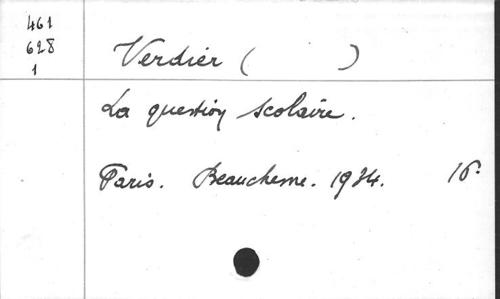 461
628
1
Verdier ( )
La question scolaire.
Paris. Beauchesne. 1934. 16°